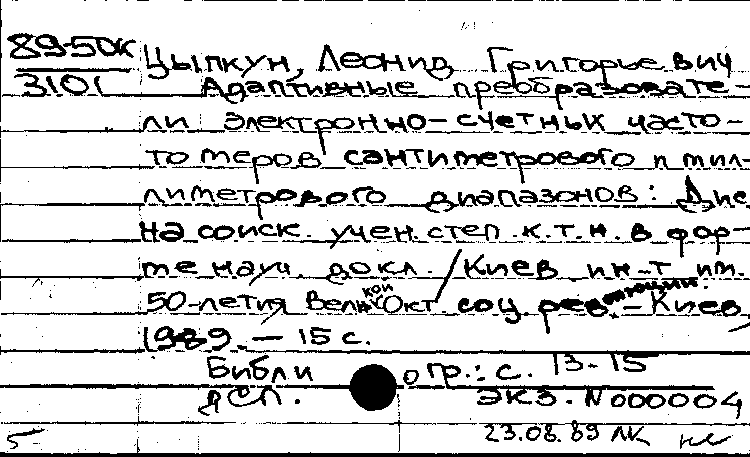 89-50к
3101
Цыпкун, Леонид Григорьевич
Адаптивные преобразовате-
ли электронно-счетных часто-
томеров сантиметрового и мил-
лиметрового диапазонов: Дис
на соиск. учен. степ. к.т.н. в фор-
ме науч. докл. / Киев. ин-т им.
50-летия Великой Окт. соц. революции. – Киев,
1989. – 15 с.
Библиогр.: с. 13-15
ДСП. экз. N000004
5- 23.08.89 ЛК